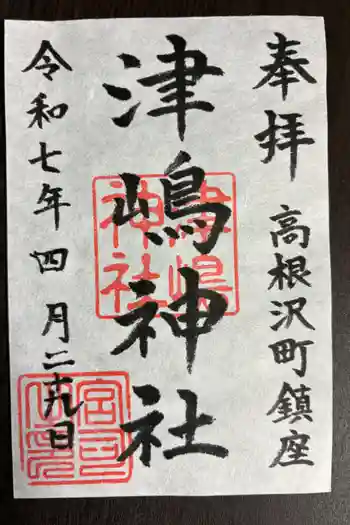 奉拝
高根沢町鎮座
津嶋神社
津嶋神社
令和七年四月二十九日